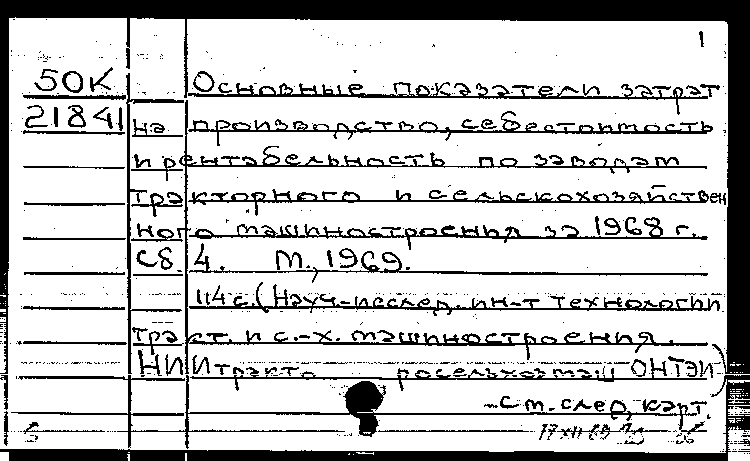 1
50К Основные показатели затрат
21841 на производство, себестоимость
и рентабельность по заводам
тракторного и сельскохозяйствен
ного машиностроения за 1968 г.
Сб. 4. М., 1969.
114 с. (Науч.-исслед. ин-т технологии
тракт. и с.-х. машиностроения.
НИИтракторосельхозмаш ОНТЭИ)
-См. след. карт.
17 XII 69